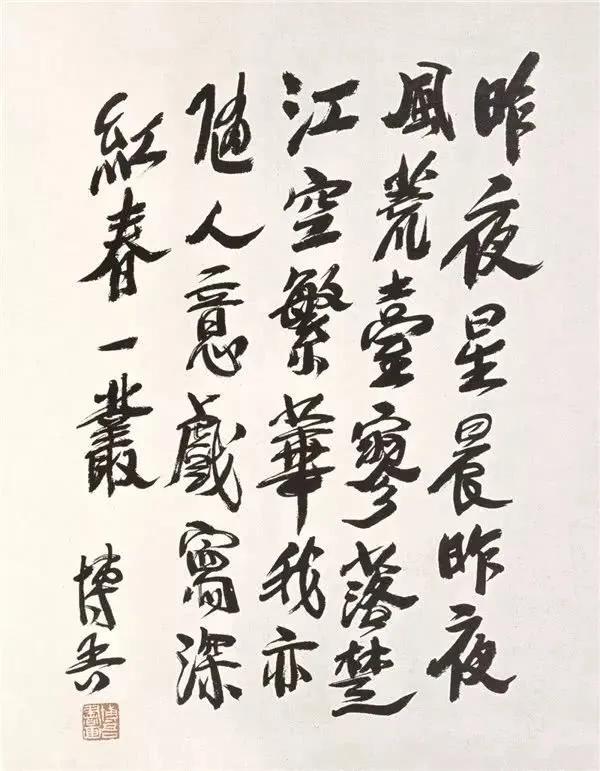 昨夜星晨昨夜
風荒臺寥落楚
江空繁華我亦
隨人意戲寫深
紅春一叢
博吾